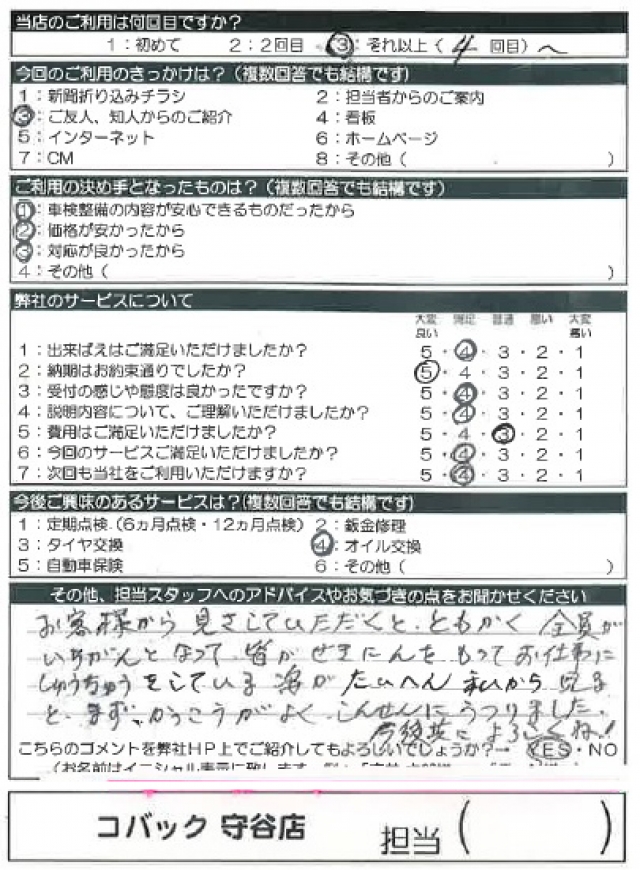 当店のご利用は何回目ですか？
1：初めて 2：2回目 3：それ以上（4 回目）へ
今回のご利用のきっかけは？（複数回答でも結構です）
1：新聞折り込みチラシ 2：担当者からのご案内
3：ご友人、知人からのご紹介 4：看板
5：インターネット 6：ホームページ
7：CM 8：その他（ ）
ご利用の決め手となったものは？（複数回答でも結構です）
1：車検整備の内容が安心できるものだったから
2：価格が安かったから
3：対応が良かったから
4：その他（ ）
弊社のサービスについて
大変良い 満足 普通 悪い 大変悪い
1：出来ばえはご満足いただけましたか？ 5・4・3・2・1
2：納期はお約束通りでしたか？ 5・4・3・2・1
3：受付の感じや態度は良かったですか？ 5・4・3・2・1
4：説明内容について、ご理解いただけましたか？ 5・4・3・2・1
5：費用はご満足いただけましたか？ 5・4・3・2・1
6：今回のサービスご満足いただけましたか？ 5・4・3・2・1
7：次回も当社をご利用いただけますか？ 5・4・3・2・1
今後ご興味のあるサービスは？（複数回答でも結構です）
1：定期点検（6ヵ月点検・12ヵ月点検） 2：鈑金修理
3：タイヤ交換 4：オイル交換
5：自動車保険 6：その他（ ）
その他、担当スタッフへのアドバイスやお気づきの点をお聞かせください
お客様から見さしていただくと、ともかく全員が
いちがんとなって、皆がせきにんをもってお仕事に
しゅうちゅうをしている姿がたいへん私から見る
と、まず、かっこうがよく、しんせんにうつりました。
今後共によろしくね！
こちらのコメントを弊社HP上でご紹介してもよろしいでしょうか？→ YES・NO
コバック 守谷店 担当（ ）